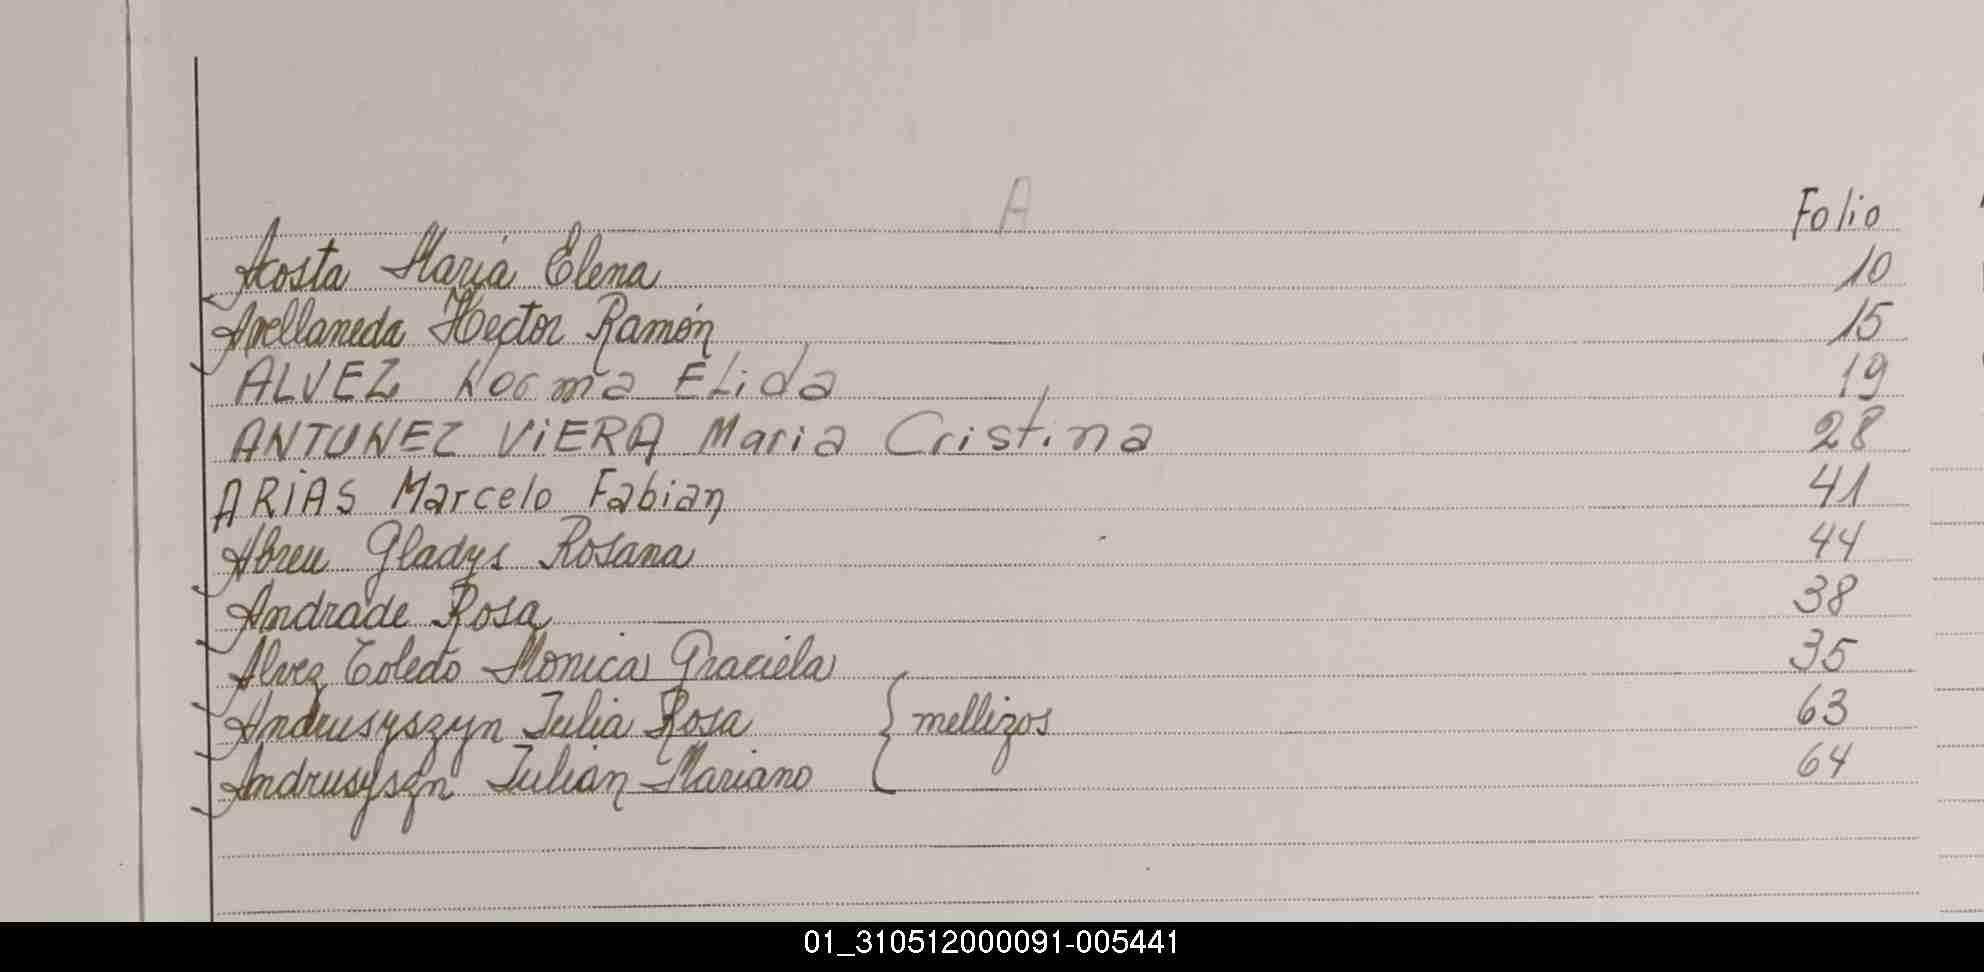 A
Folio
Acosta Maria Elena 10
Avellaneda Hector Ramón 15
ALVEZ Norma ELida 19
ANTUNEZ ViERA Maria Cristina 28
ARiAS Marcelo Fabian 41
Abreu Gladys Rosana 44
Andrade Rosa 38
Alvez Toledo Monica Graciela 35
Andrusyszyn Julia Rosa { mellizos 63
Andrusyszn Julian Mariano 64
01_310512000091-005441